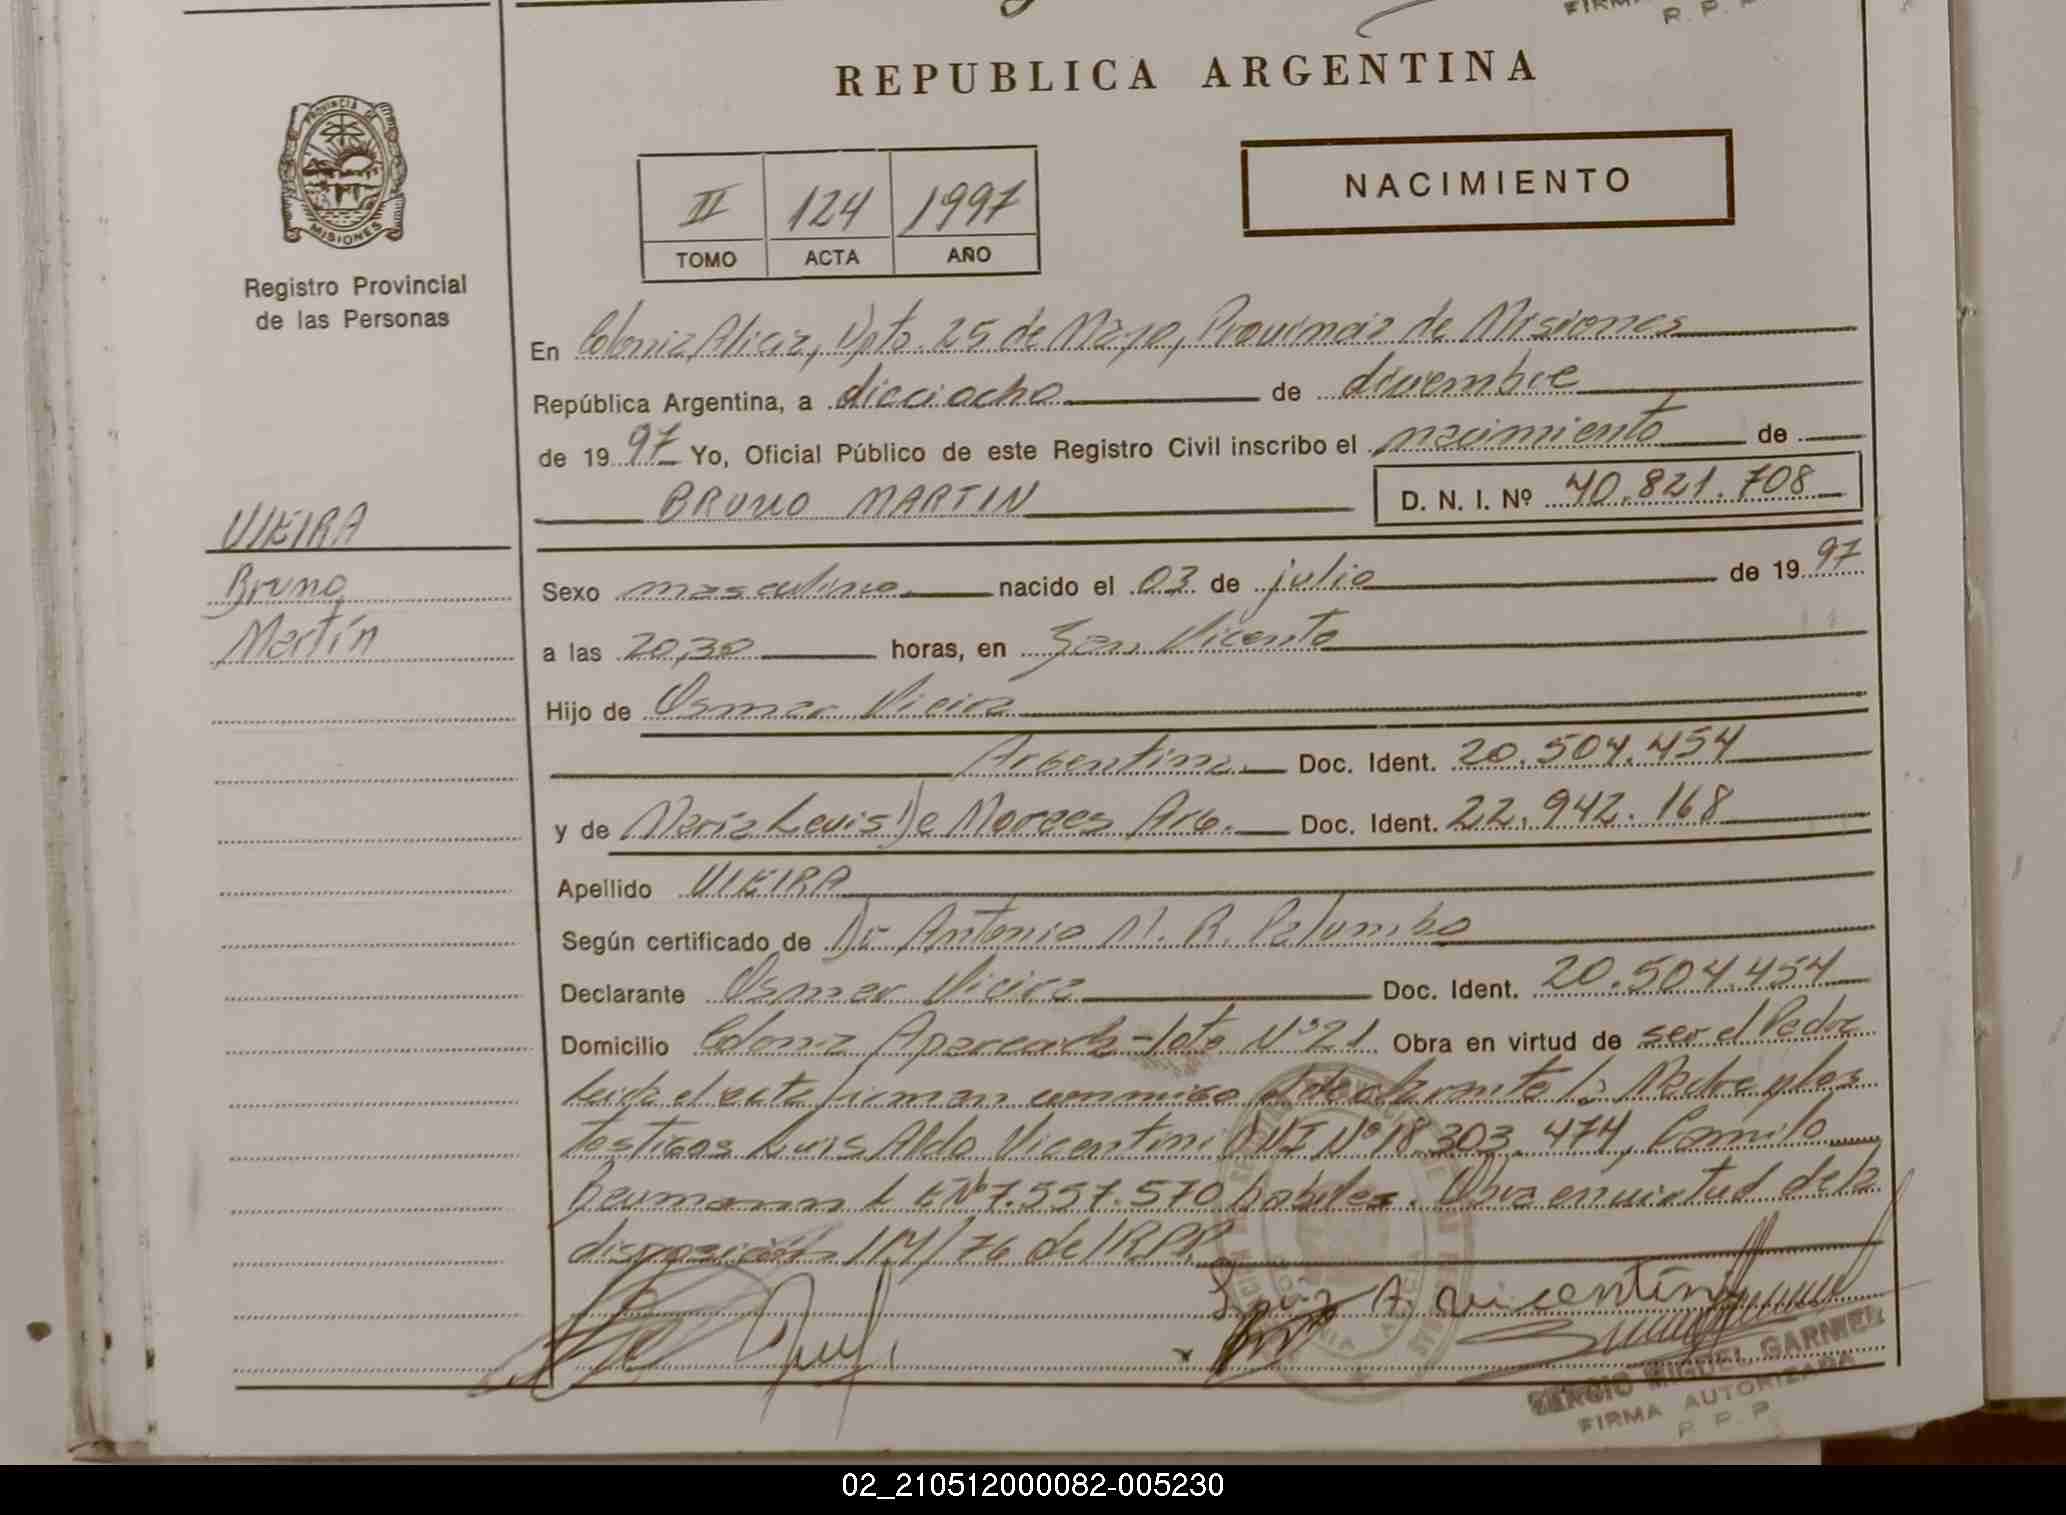 FIRMA
R. P. P.
REPUBLICA ARGENTINA
PROVINCIA DE
MISIONES
Registro Provincial
de las Personas
II 124 1997
TOMO ACTA AÑO
NACIMIENTO
En Colonia Alicia, Dpto. 25 de Mayo, Provincia de Misiones
República Argentina, a dieciocho de diciembre
de 19 97 Yo, Oficial Público de este Registro Civil inscribo el nacimiento de
BRUNO MARTIN D. N. I. Nº 40.821.708
VIEIRA
Bruno
Martín
Sexo masculino nacido el 03 de julio de 19 97
a las 20,30 horas, en San Vicente
Hijo de Osmar Vieira
Argentina Doc. Ident. 20.504.454
y de María Luisa De Moraes Arg. Doc. Ident. 22.942.168
Apellido VIEIRA
Según certificado de Dr Antonio M. R. Palumbo
Declarante Osmar Vieira Doc. Ident. 20.504.454
Domicilio Colonia Aparecida - lote Nº 21 Obra en virtud de ser el Padre
Leída el acta firman conmigo el declarante la Madre y los
testigos Luis Aldo Vicentini DNI Nº 18.303.474, Camilo
Beumann L E Nº 7.557.570 habiles. Obra en virtud de la
disposición 114/76 del RPP.
Luiz A. vicentini
SERGIO MIGUEL GARNIEL
FIRMA AUTORIZADA
R. P. P.
02_210512000082-005230